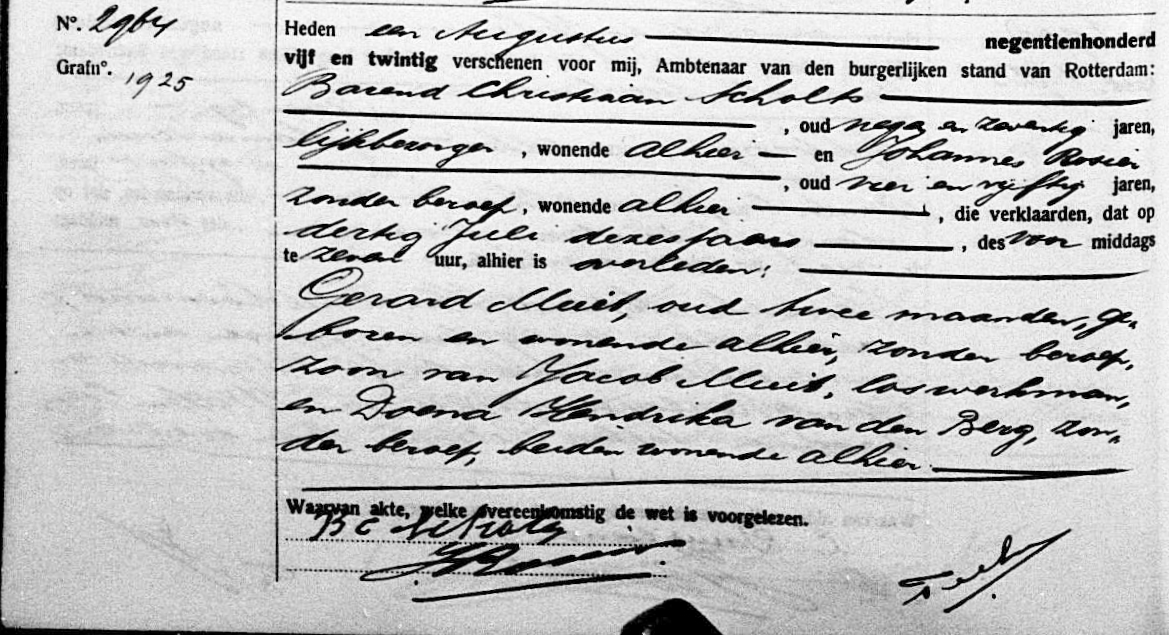 N°. 2964
Grafn°. 1925
Heden een Augustus negentienhonderd
vijf en twintig verschenen voor mij, Ambtenaar van den burgerlijken stand van Rotterdam:
Barend Christiaan Scholts
, oud negen en zeventig jaren,
lijkbezorger, wonende alhier en Johannes Rosier
, oud vier en vijftig jaren,
zonder beroep, wonende alhier, die verklaarden, dat op
dertig Juli dezes jaars, des voor middags
te zeven uur, alhier is overleden:
Gerard Muit, oud twee maanden, ge-
boren en wonende alhier, zonder beroep,
zoon van Jacob Muit, los werkman,
en Doena Hendrika van den Berg, zon-
der beroep, beiden wonende alhier.
Waarvan akte, welke overeenkomstig de wet is voorgelezen.
B C Scholts
J Rosier